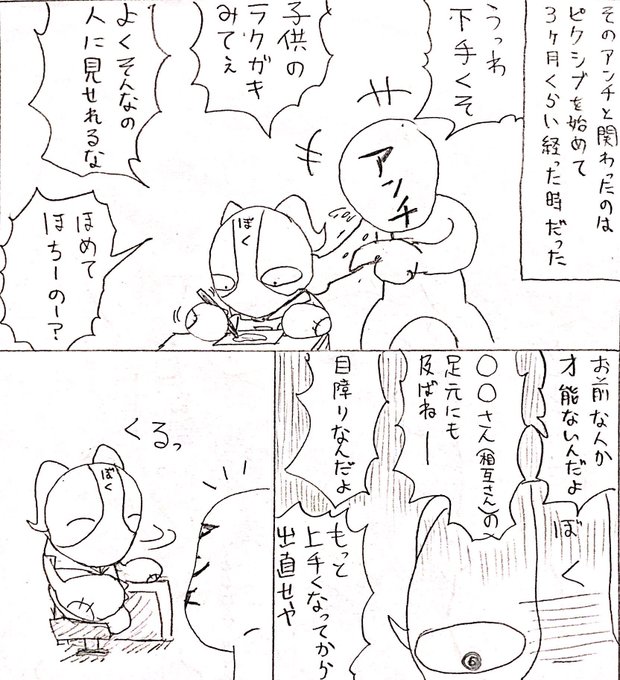 そのアンチと関わったのは
ピクシブを始めて
3ヶ月くらい経った時だった
うっわ
下手くそ
アンチ
子供の
ラクガキ
みてぇ
よくそんなの
人に見せれるな
ぼく
ほめて
ほちーのー?
お前な人か
才能ないんだよ
〇〇さん(相互さん)の
足元にも
及ばねー
目障りなんだよ
もっと
上手くなってから
出直せや
ぼく
くるっ
ぼく